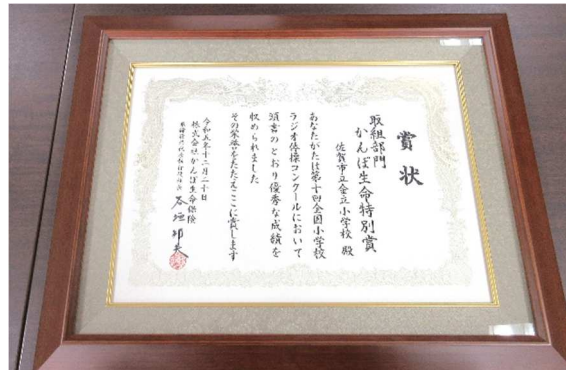 賞状
取組部門
かんぽ生命特別賞
佐賀市立金立小学校 殿
あなたがたは第十回全国小学校
ラジオ体操コンクールにおいて
頭書のとおり優秀な成績を
収められました
その栄誉をたたえここに賞します
令和五年十二月二十日
株式会社かんぽ生命保険
谷垣邦夫